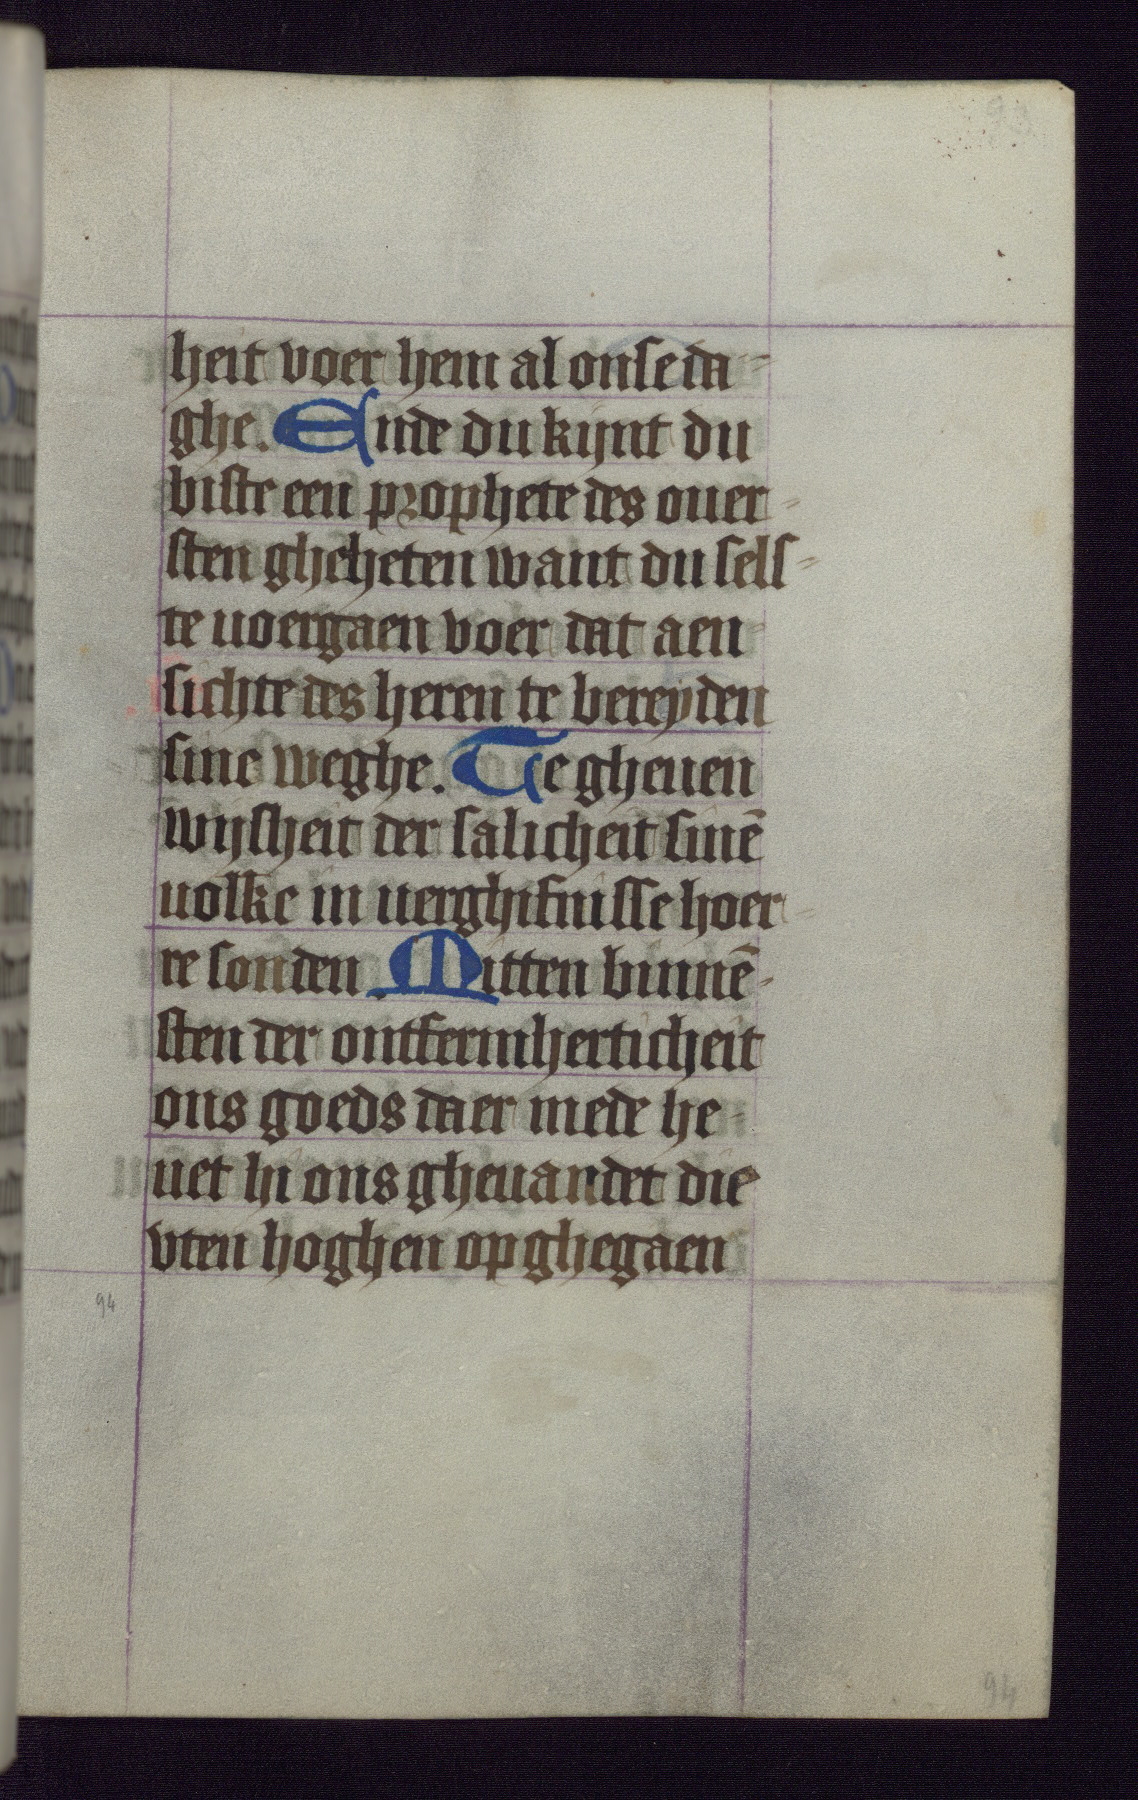 93
heit voer hem al onse da-
ghe. Ende du kijnt du
biste een prophete des ouer-
sten gheheten want du sels-
te uoergaen voer dat aen-
sichte des heren te bereyden
sine weghe. Te gheuen
wijsheit der salicheit sinē
uolke in uerghifnisse hoer-
re sonden. Mitten binnē-
sten der ontfermherticheit
ons goeds daer mede he-
uet hi ons gheuandet die
vten hoghen op ghegaen
94
94